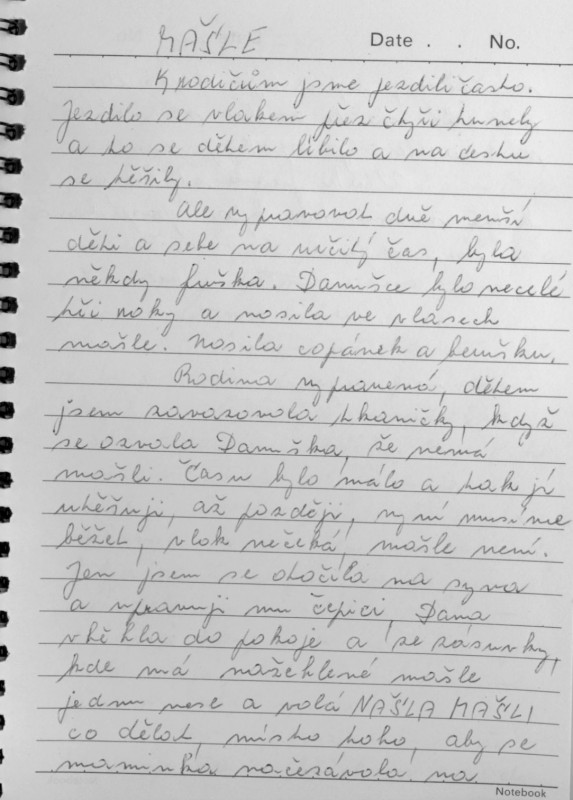 MAŠLE
Date . . No.
K rodičům jsme jezdili často.
Jezdilo se vlakem přez čtyři tunely
a to se dětem líbilo a na cestu
se těšily.
Ale vypravovat dvě menší
děti a sebe na určitý čas, byla
někdy fuška. Danušce bylo necelé
tři roky a nosila ve vlasech
mašle. Nosila copánek a berušku.
Rodina vypravená, dětem
jsem zavazovala tkaničky, když
se ozvala Danuška, že nemá
mašli. Času bylo málo a tak jí
utěšuji, až později, nyní musíme
běžet, vlak nečeká, mašle není.
Jen jsem se otočila na syna
a upravuji mu čepici, Dana
vběhla do pokoje a ze zásuvky,
kde má nažehlené mašle
jednu nese a volá NAŠLA MAŠLI
co dělat, místo toho, aby se
maminka načesávala, na
Notebook